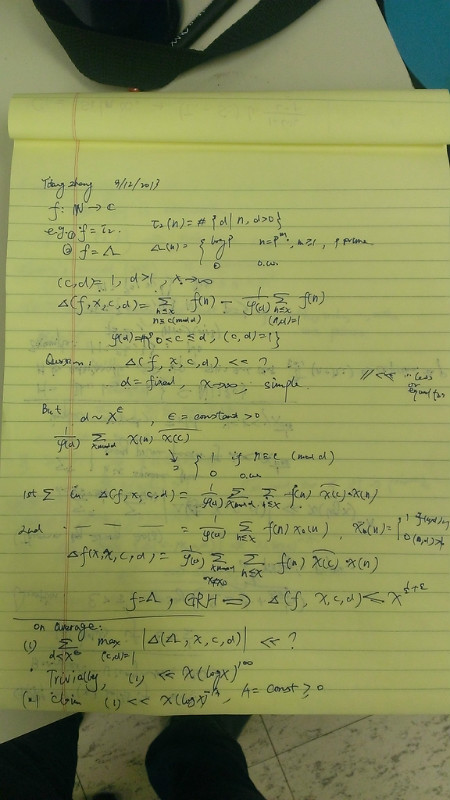 Yitang Zhang 9/12/2013
f: N → C
e.g. ① f = τ₂. τ₂(n) = #{d | n, d>0}
② f = Λ Λ(n) = { log p n = pᵐ, m≥1, p prime
0 o.w.
(c,d) = 1, d>1, x→∞
Δ(f,x,c,d) = Σ_{n≤x, n≡c(mod d)} f(n) − 1/φ(d) Σ_{n≤x, (n,d)=1} f(n)
φ(d) = #{0<c≤d, (c,d)=1}
Question: Δ(f,x,c,d) << ?
d = fixed, x→∞, simple. // << "less or equal to"
But d ~ x^ε, ε = constant > 0
1/φ(d) Σ_{χ mod d} χ(n) \overline{χ(c)}
= { 1 if n≡c (mod d)
0 o.w.
1st Σ in Δ(f,x,c,d) = 1/φ(d) Σ_{χ mod d} Σ_{n≤x} f(n) \overline{χ(c)} χ(n)
2nd — — = 1/φ(d) Σ_{n≤x} f(n) χ₀(n), χ₀(n) = { 1 if (n,d)=1
0 (n,d)>1
Δ(f,x,c,d) = 1/φ(d) Σ_{χ mod d, χ≠χ₀} Σ_{n≤x} f(n) \overline{χ(c)} χ(n)
f = Λ, GRH ⟹ Δ(f,x,c,d) << x^{1/2+ε}
on average:
(1) Σ_{d<x^ε} max_{(c,d)=1} |Δ(Λ,x,c,d)| << ?
Trivially, (1) << x(log x)¹⁰⁰
claim (1) << x(log x)^{-A}, A = const ≥ 0